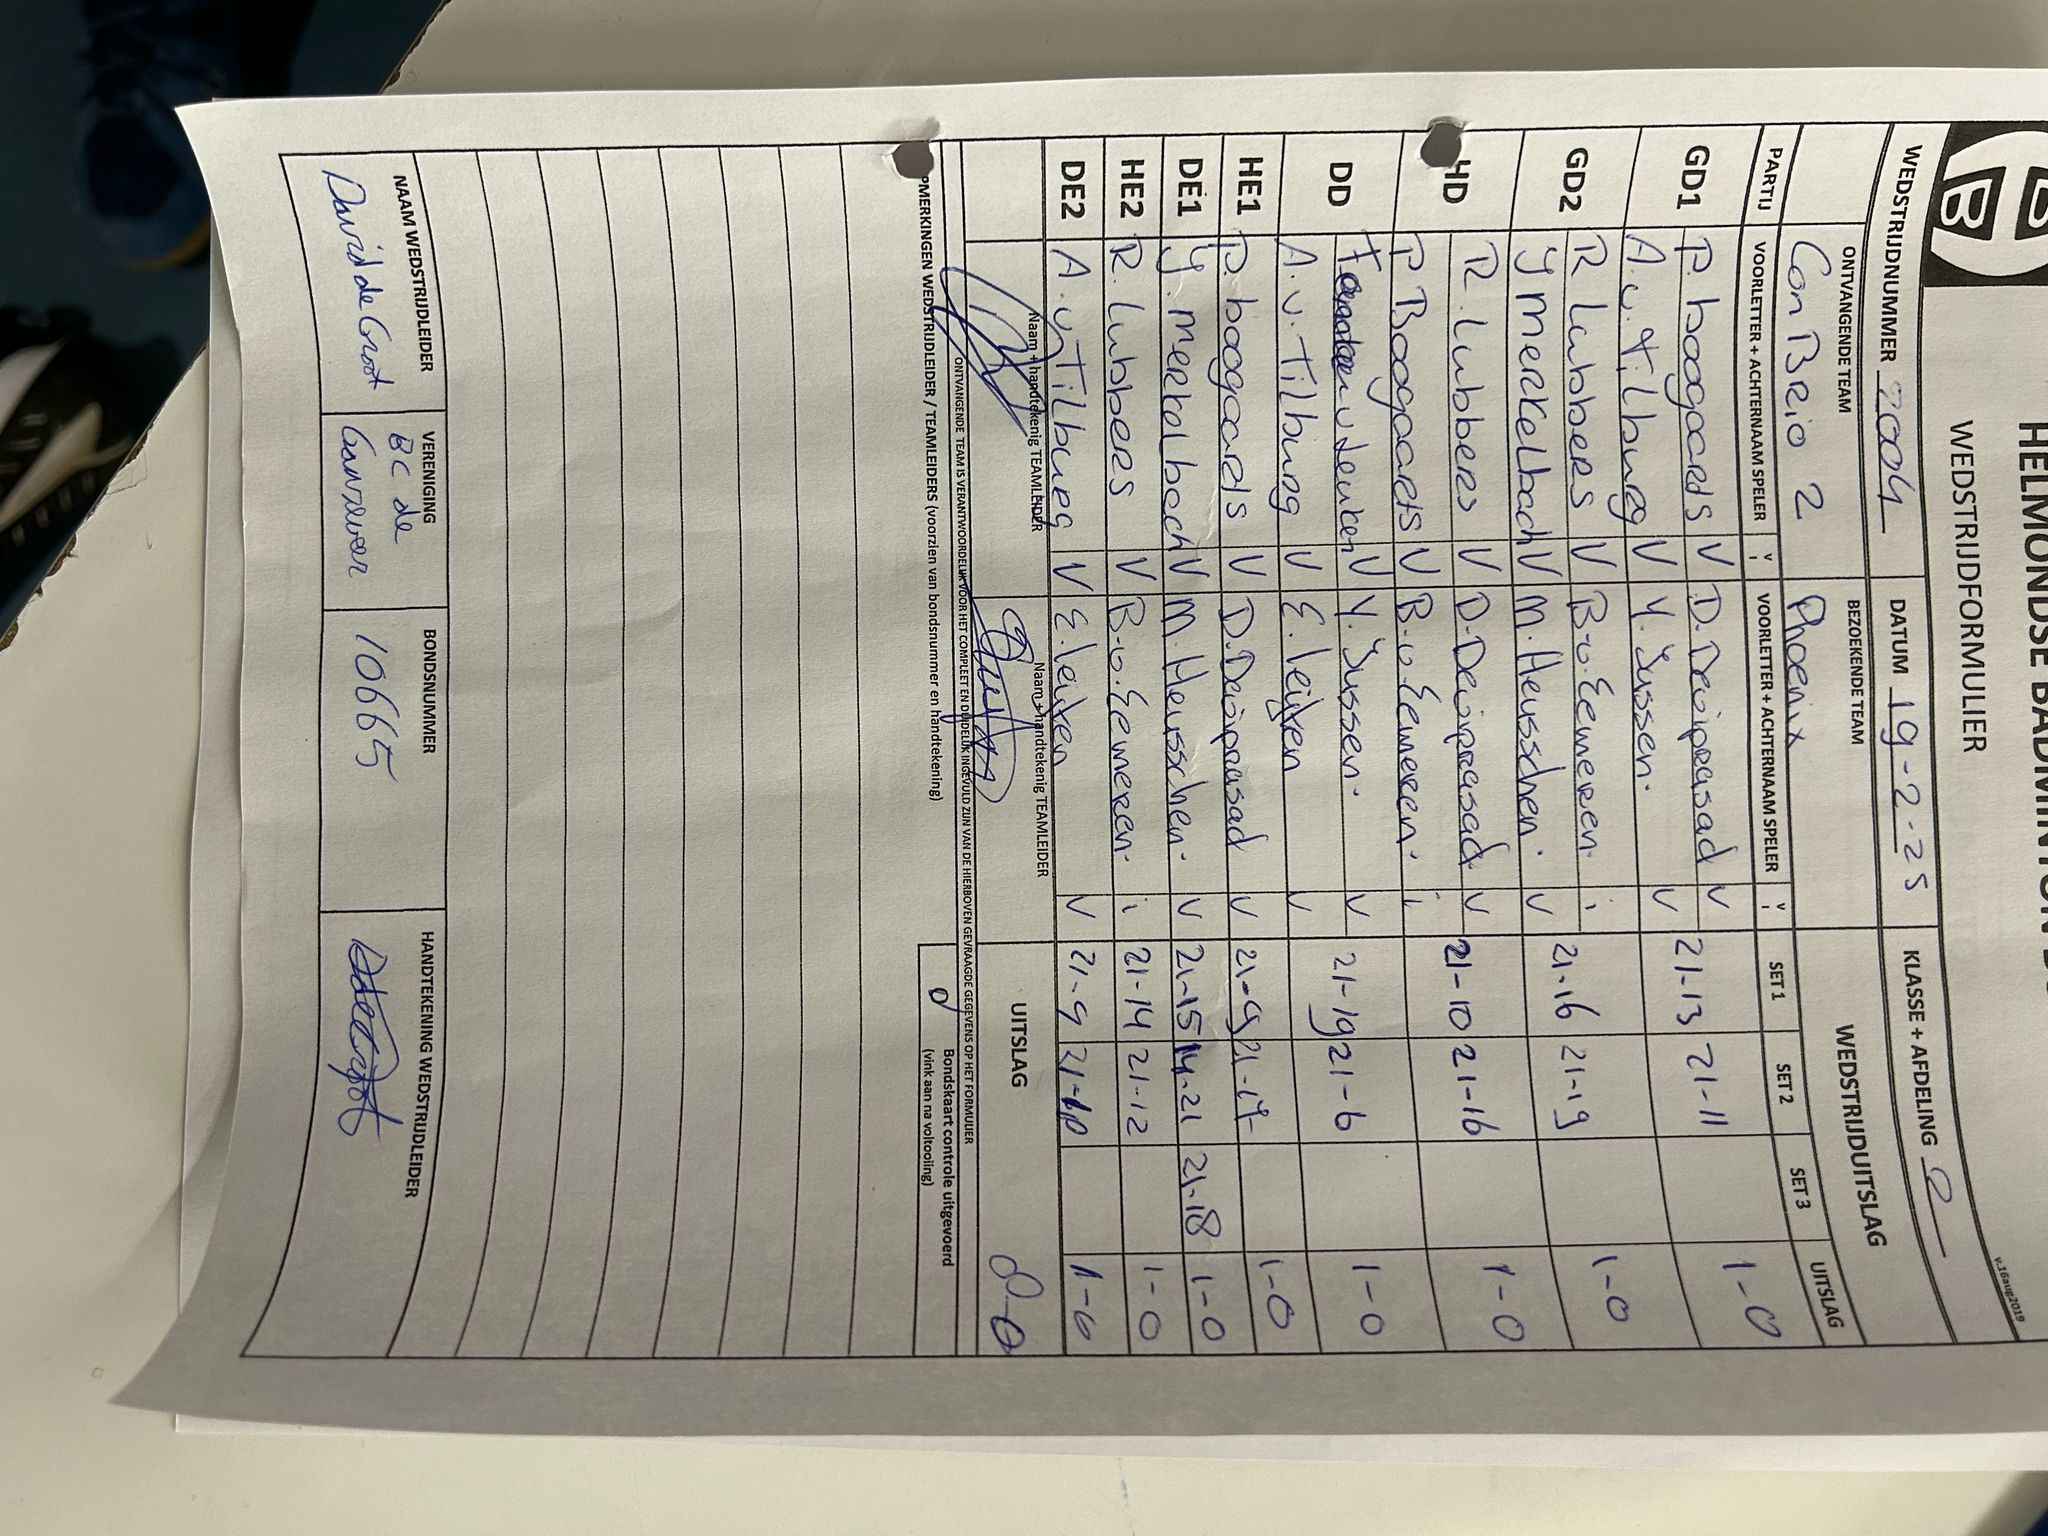 HELMONDSE BADMINTON B
WEDSTRIJDFORMULIER
v.16aug2019
WEDSTRIJDNUMMER 2004 DATUM 19-2-25 KLASSE + AFDELING 0
ONTVANGENDE TEAM BEZOEKENDE TEAM WEDSTRIJDUITSLAG
Con Brio 2 Phoenix
PARTIJ VOORLETTER + ACHTERNAAM SPELER V I VOORLETTER + ACHTERNAAM SPELER V I SET 1 SET 2 SET 3 UITSLAG
GD1 P. boogaards V D. Deviprasad V 21-13 21-11 1-0
A. v. Tilburg V Y. Jussen. V
GD2 R Lubbers V B. v. Eemeren. i 21-16 21-19 1-0
Y Merkelbach V M. Heusschen. V
HD R. Lubbers V D. Deviprasad V 21-10 21-16 1-0
P. Boogaarts V B. v. Eemeren. i
DD V Y. Jussen. V 21-19 21-6 1-0
A. v. Tilburg V E. leijten V
HE1 P. boogaards V D. Deviprasad V 21-9 21-17 1-0
DE1 Y. Merkelbach V M. Heusschen. V 21-15 14-21 21-18 1-0
HE2 R. Lubbers V B. v. Eemeren. i 21-14 21-12 1-0
DE2 A. v Tilburg V E. leijten V 21-9 21-10 1-0
Naam + handtekenig TEAMLEIDER Naam + handtekenig TEAMLEIDER UITSLAG 8-0
ONTVANGENDE TEAM IS VERANTWOORDELIJK VOOR HET COMPLEET EN DUIDELIJK INGEVULD ZIJN VAN DE HIERBOVEN GEVRAAGDE GEGEVENS OP HET FORMULIER
PMERKINGEN WEDSTRIJDLEIDER / TEAMLEIDERS (voorzien van bondsnummer en handtekening) Bondskaart controle uitgevoerd
(vink aan na voltooiing)
NAAM WEDSTRIJDLEIDER VERENIGING BONDSNUMMER HANDTEKENING WEDSTRIJDLEIDER
David de Groot BC de 10665